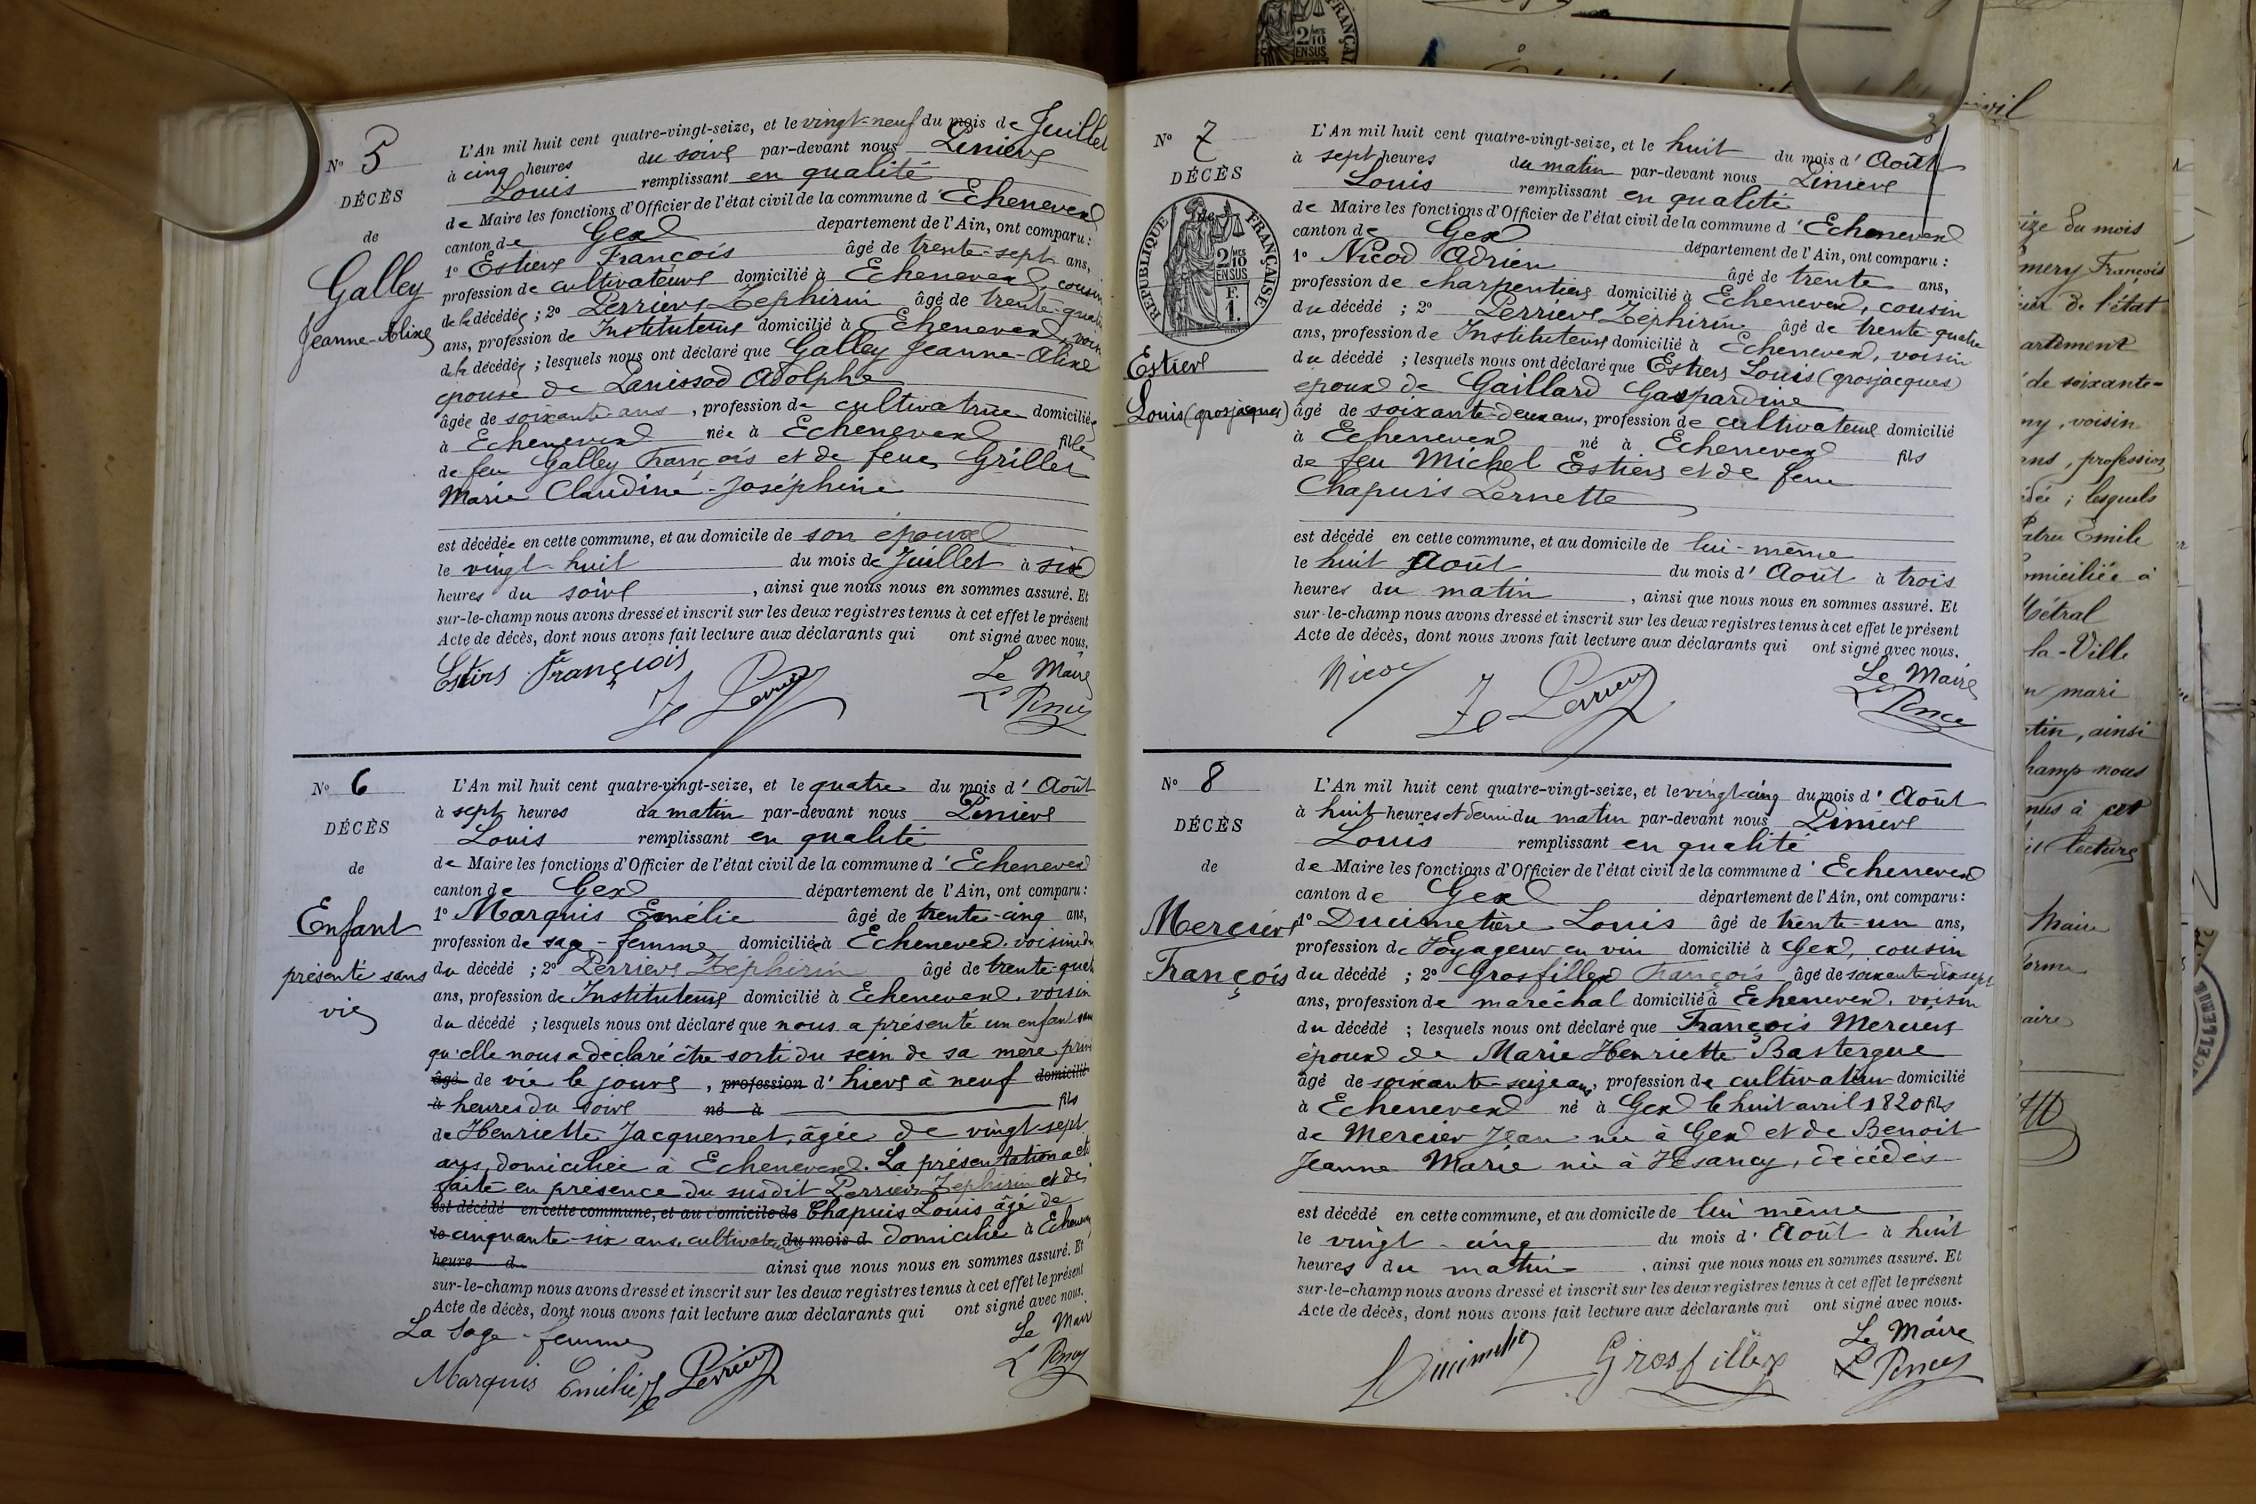 N° 5
DÉCÈS
de
Galley
Jeanne-Alixe
L'An mil huit cent quatre-vingt-seize, et le vingt-neuf du mois de Juillet
à cinq heures du soir par-devant nous
Louis remplissant en qualité
de Maire les fonctions d'Officier de l'état civil de la commune d'Echenevex
canton de Gex département de l'Ain, ont comparu :
1° Estier François âgé de trente-sept ans,
profession de cultivateur domicilié à Echenevex, cousin
de la décédée ; 2° Perrier Zéphirin âgé de trente-quatre
ans, profession de Instituteur domicilié à Echenevex, voisin
de la décédée ; lesquels nous ont déclaré que Galley Jeanne-Alixe
épouse de Panissod Adolphe
âgée de soixante ans, profession de cultivatrice domiciliée
à Echenevex née à Echenevex fille
de feu Galley François et de feue Grillet
Marie Claudine-Joséphine
est décédée en cette commune, et au domicile de son époux
le vingt-huit du mois de Juillet à six
heures du soir, ainsi que nous nous en sommes assuré. Et
sur-le-champ nous avons dressé et inscrit sur les deux registres tenus à cet effet le présent
Acte de décès, dont nous avons fait lecture aux déclarants qui ont signé avec nous.
Estier François
Ze Perrier
Le Maire
N° 6
DÉCÈS
de
Enfant
présenté sans
vie
L'An mil huit cent quatre-vingt-seize, et le quatre du mois d'Août
à sept heures du matin par-devant nous
Louis remplissant en qualité
de Maire les fonctions d'Officier de l'état civil de la commune d'Echenevex
canton de Gex département de l'Ain, ont comparu :
1° Marquis Emélie âgé de trente-cinq ans,
profession de sage-femme domiciliée à Echenevex, voisine du
du décédé ; 2° Perrier Zéphirin âgé de trente-quatre
ans, profession de Instituteur domicilié à Echenevex, voisin
du décédé ; lesquels nous ont déclaré que nous a présenté un enfant sans
qu'elle nous a déclaré être sorti du sein de sa mère privé
âgé de vie le jour, profession d'hier à neuf domicilié
à heures du soir né à fils
de Henriette Jacquemet, âgée de vingt-sept
ans, domiciliée à Echenevex. La présentation a été
faite en présence du susdit Perrier Zéphirin et de
est décédé en cette commune, et au domicile de Chapuis Louis âgé de
le cinquante-six ans, cultivateur du mois d domicilié à Echenevex
heure du ainsi que nous nous en sommes assuré. Et
sur-le-champ nous avons dressé et inscrit sur les deux registres tenus à cet effet le présent
Acte de décès, dont nous avons fait lecture aux déclarants qui ont signé avec nous.
La Sage-femme
Le Maire
Marquis Emélie Ze Perrier
N° 7
DÉCÈS
de
RÉPUBLIQUE FRANÇAISE
2/10 EN SUS
F. 1.
Estier
Louis (grosjacques)
L'An mil huit cent quatre-vingt-seize, et le huit du mois d'Août
à sept heures du matin par-devant nous
Louis remplissant en qualité
de Maire les fonctions d'Officier de l'état civil de la commune d'Echenevex
canton de Gex département de l'Ain, ont comparu :
1° Nicod Adrien âgé de trente ans,
profession de charpentier domicilié à Echenevex, cousin
du décédé ; 2° Perrier Zéphirin âgé de trente-quatre
ans, profession de Instituteur domicilié à Echenevex, voisin
du décédé ; lesquels nous ont déclaré que Estier Louis (grosjacques)
époux de Gaillard Gaspardine
âgé de soixante-deux ans, profession de cultivateur domicilié
à Echenevex né à Echenevex fils
de feu Michel Estier et de feue
Chapuis Pernette
est décédé en cette commune, et au domicile de lui-même
le huit Août du mois d'Août à trois
heures du matin, ainsi que nous nous en sommes assuré. Et
sur-le-champ nous avons dressé et inscrit sur les deux registres tenus à cet effet le présent
Acte de décès, dont nous avons fait lecture aux déclarants qui ont signé avec nous.
Nicod
Ze Perrier
Le Maire
N° 8
DÉCÈS
de
Mercier
François
L'An mil huit cent quatre-vingt-seize, et le vingt-cinq du mois d'Août
à huit heures et demi du matin par-devant nous
Louis remplissant en qualité
de Maire les fonctions d'Officier de l'état civil de la commune d'Echenevex
canton de Gex département de l'Ain, ont comparu :
1° Ducimetière Louis âgé de trente-un ans,
profession de Voyageur en vin domicilié à Gex, cousin
du décédé ; 2° Grosfillex François âgé de soixante-dix-sept
ans, profession de maréchal domicilié à Echenevex, voisin
du décédé ; lesquels nous ont déclaré que François Mercier
époux de Marie Henriette Bastergue
âgé de soixante-seize ans, profession de cultivateur domicilié
à Echenevex né à Gex le huit avril 1820 fils
de Mercier Jean né à Gex et de Benoit
Jeanne Marie née à Vésancy, décédés
est décédé en cette commune, et au domicile de lui même
le vingt-cinq du mois d'Août à huit
heures du matin, ainsi que nous nous en sommes assuré. Et
sur-le-champ nous avons dressé et inscrit sur les deux registres tenus à cet effet le présent
Acte de décès, dont nous avons fait lecture aux déclarants qui ont signé avec nous.
Grosfillex
Le Maire
du mois
François
de l'état
artement
de soixante-
voisin
profession
lesquels
Emile
omiciliée à
Métral
la-Ville
mari
ainsi
hamp nous
nus à cet
lecture
Maire